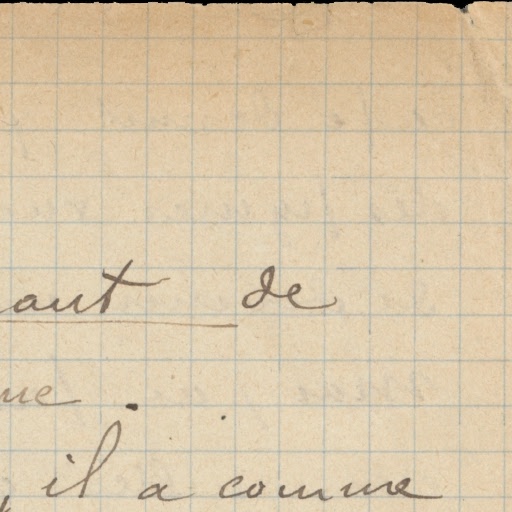 ant de
me.
, il a comme